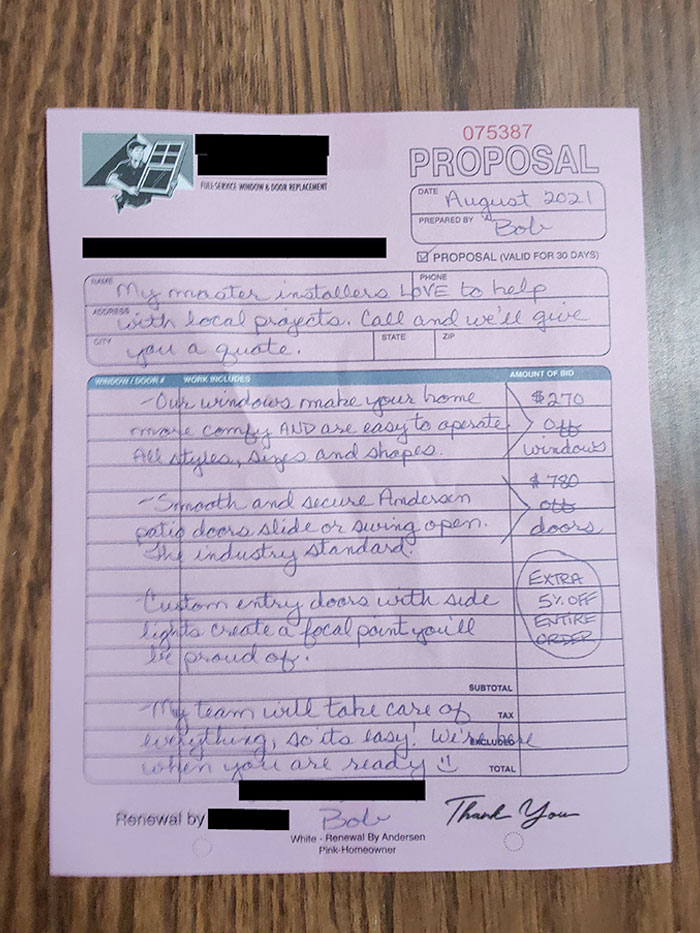 075387
PROPOSAL
FULL-SERVICE WINDOW & DOOR REPLACEMENT
DATE August 2021
PREPARED BY Bob
PROPOSAL (VALID FOR 30 DAYS)
NAME PHONE
My master installers LOVE to help
ADDRESS
with local projects. Call and we'll give
CITY STATE ZIP
you a quote.
WINDOW / DOOR # WORK INCLUDES AMOUNT OF BID
-Our windows make your home $270
more comfy AND are easy to operate. Off
All styles, sizes and shapes. windows
$780
-Smooth and secure Andersen off
patio doors slide or swing open. doors
The industry standard.
EXTRA
-Custom entry doors with side 5% OFF
lights create a focal point you'll ENTIRE
be proud of. ORDER
SUBTOTAL
-My team will take care of TAX
everything, so its easy! We're here EXCLUDED
when you are ready TOTAL
Renewal by Bob Thank You
White - Renewal By Andersen
Pink-Homeowner